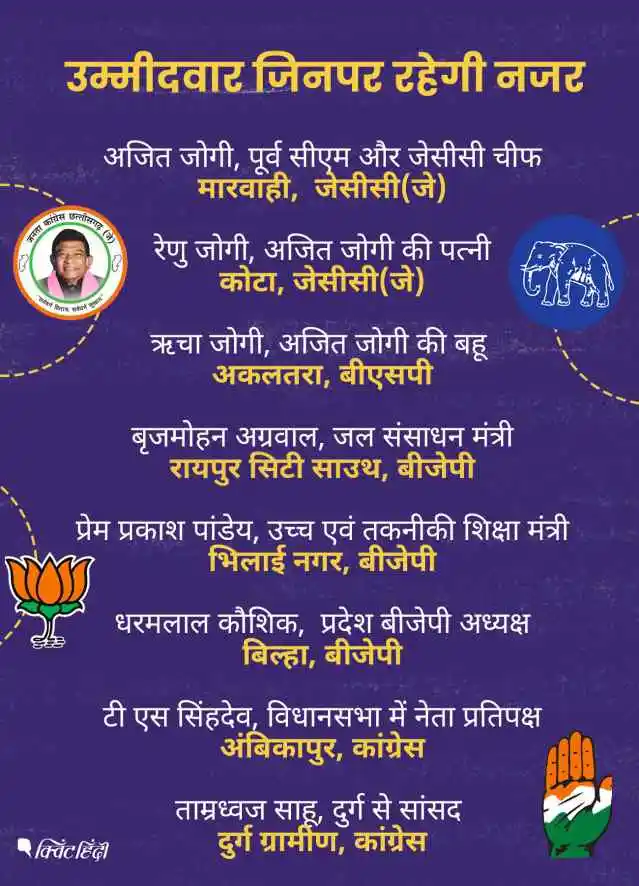 उम्मीदवार जिनपर रहेगी नजर
अजित जोगी, पूर्व सीएम और जेसीसी चीफ
मारवाही, जेसीसी(जे)
जनता कांग्रेस छत्तीसगढ़ (जे)
रेणु जोगी, अजित जोगी की पत्नी
कोटा, जेसीसी(जे)
ऋचा जोगी, अजित जोगी की बहू
अकलतरा, बीएसपी
बृजमोहन अग्रवाल, जल संसाधन मंत्री
रायपुर सिटी साउथ, बीजेपी
प्रेम प्रकाश पांडेय, उच्च एवं तकनीकी शिक्षा मंत्री
भिलाई नगर, बीजेपी
धरमलाल कौशिक, प्रदेश बीजेपी अध्यक्ष
बिल्हा, बीजेपी
टी एस सिंहदेव, विधानसभा में नेता प्रतिपक्ष
अंबिकापुर, कांग्रेस
ताम्रध्वज साहू, दुर्ग से सांसद
दुर्ग ग्रामीण, कांग्रेस
क्विंट हिंदी